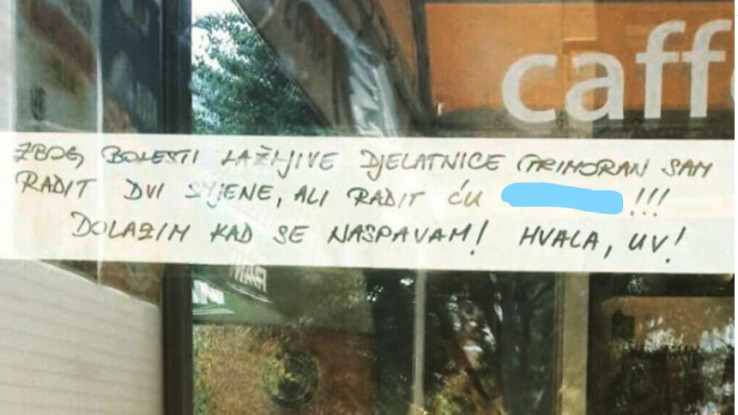 caff
ZBOG BOLESTI LAŽLJIVE DJELATNICE PRIMORAN SAM
RADIT DVI SMJENE, ALI RADIT ĆU !!!
DOLAZIM KAD SE NASPAVAM! HVALA, UV!